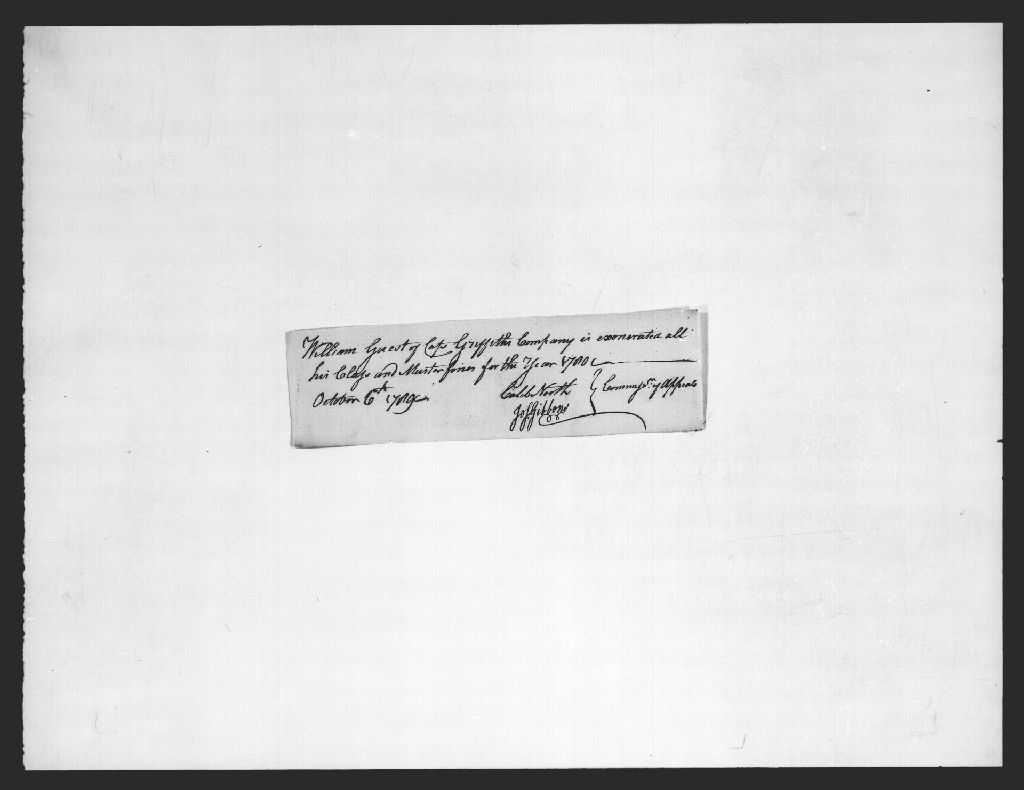 William Guest of Capt Griffiths Company is exonerated all
his Class and Muster fines for the Year 1780
October 6th 1789
Caleb North
Jos Gibbons
} Commissrs of Appeals